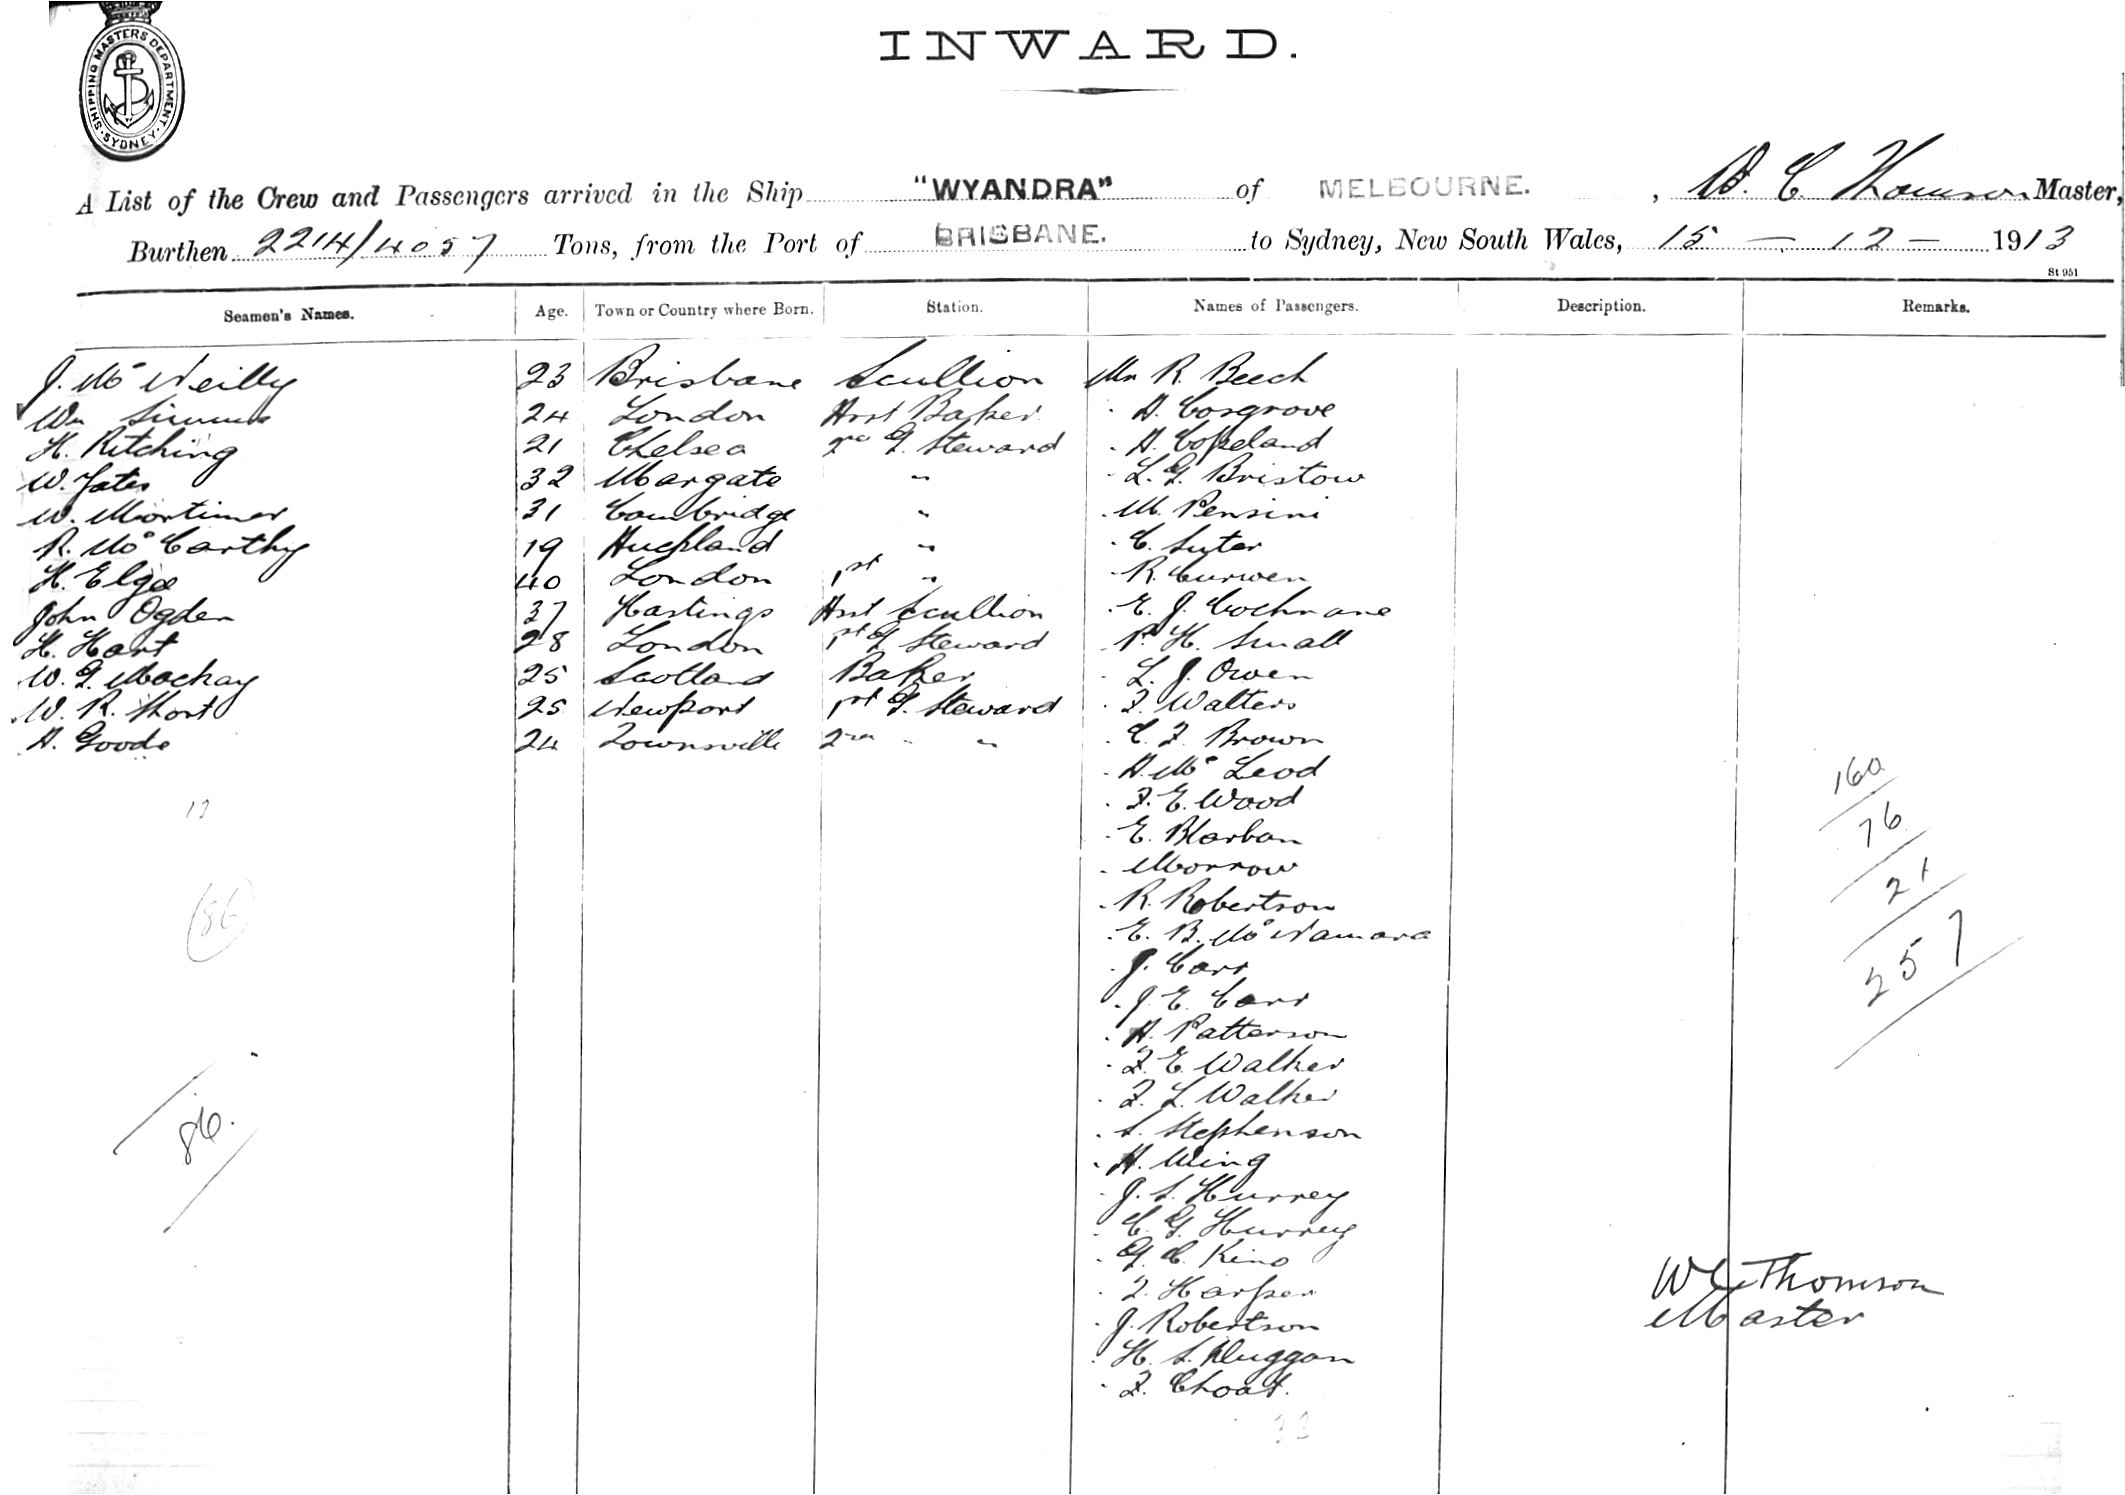 SHIPPING MASTERS DEPARTMENT · SYDNEY ·
INWARD.
A List of the Crew and Passengers arrived in the Ship "WYANDRA" of MELBOURNE. , W. C. Thomson Master,
Burthen 2214/4057 Tons, from the Port of BRISBANE. to Sydney, New South Wales, 15 - 12 - 1913
St 951
Seamen's Names. Age. Town or Country where Born. Station. Names of Passengers. Description. Remarks.
J. Mc Neilly 23 Brisbane Scullion Mr R. Beech
Wm Simms 24 London Asst Baker · A. Cosgrove
H. Kitching 21 Chelsea 2nd G. Steward · A. Copeland
W. Yates 32 Margate " · L. G. Bristow
W. Mortimer 31 Cambridge " · M. Pensini
R. Mc Carthy 19 Auckland " · C. Suter
H. Elgee 40 London 1st " · R. Curwen
John Ogden 37 Hastings Asst Scullion · E. J. Cochrane
H. Hart 28 London 1st G. Steward · P. H. Small
W. G. Mackay 25 Scotland Baker · L. J. Owen
W. R. Short 25 Newport 1st G. Steward · F. Walters
A. Goode 24 Townsville 2nd " " · C. F. Brown
· A. Mc Leod
· F. E. Wood
· E.
· Morrow
· R. Robertson
· E. B. Mc Namara
· J. Carr
· J. E. Carr
· A. Patterson
· F. E. Walker
· F. L. Walker
· S. Stephenson
· A. Wing
· J. S. Hurrey
· C. G. Hurrey
· G. C. King
· F. Harper
· J. Robertson
· H. S. Duggan
· F. Choat.
32
12
86
86.
160
76
21
257
W C Thomson
Master